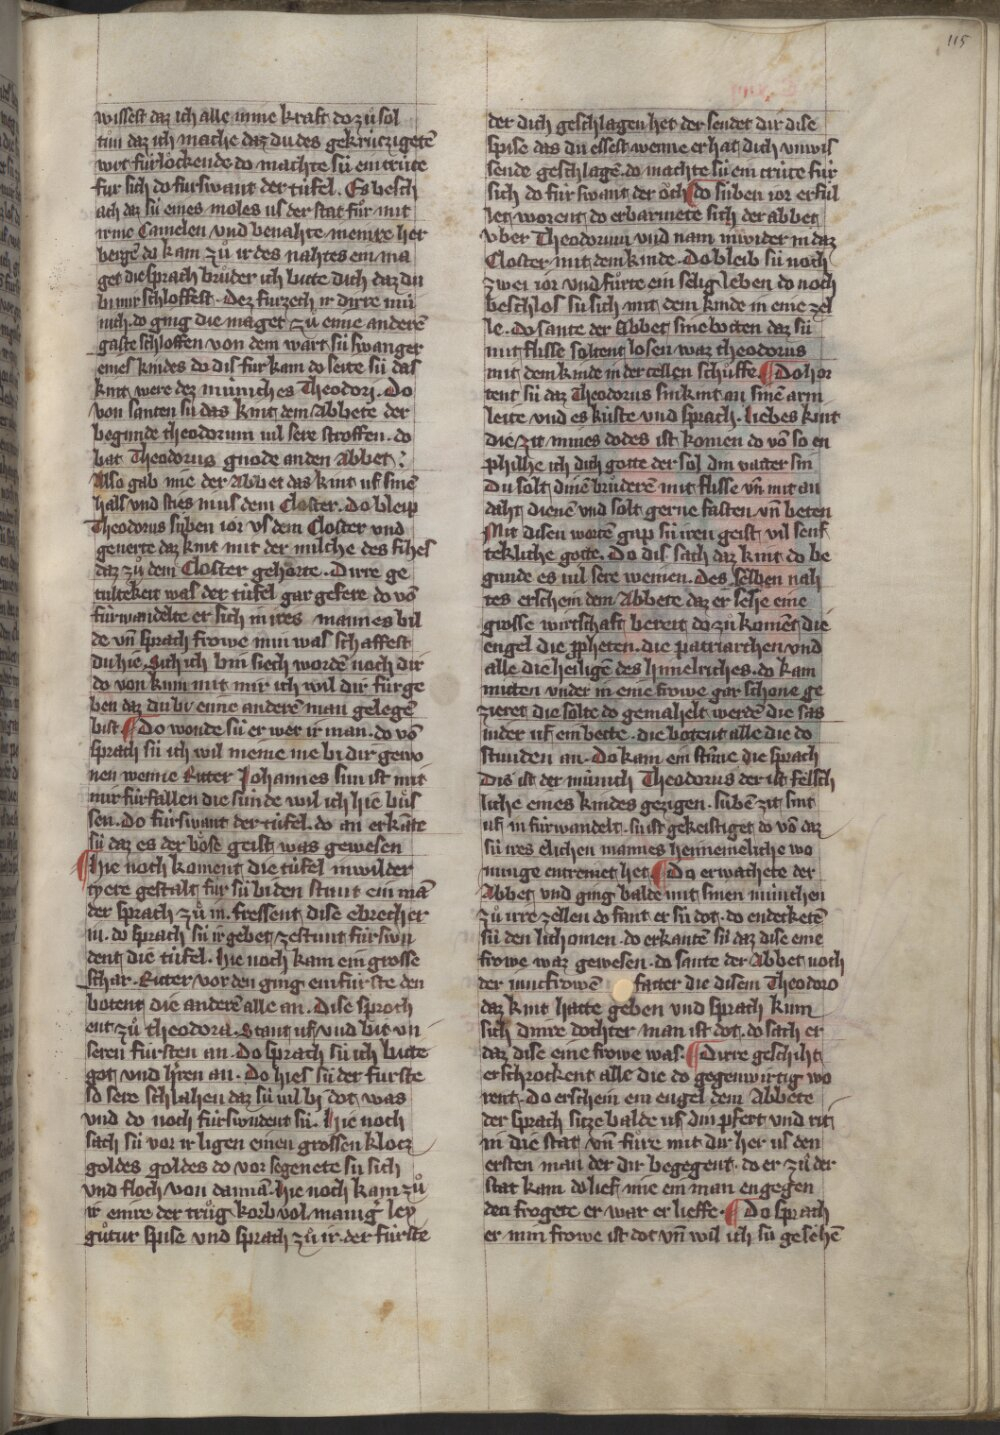 115
wissest daz ich alle mine kraft do zuͦ sol
tuͦn daz ich mache daz du des gekrúczigetē
wirt fúrloͤckende do machte sú ein crúte
fur sich do furswant der túfel. Es besch
ach daz sú eines moles us der stat fuͦr mit
irme Camelen vnd benahte in eine her
bergē do kam zuͦ ir des nahtes ein ma
get die sprach bruͦder ich bitte dich daz du
bi mir schloffest. Dez furzech ir dirre mú
nich. do ging die maget zuͦ eime anderē
gaste schloffen von dem wart sú swanger
eines kindes do dis fur kam do seite sú das
kint were dez múniches Theodori. Do
von santen sú das kint dem Abbete der
begunde theodorum uil sere stroffen. do
bat Theodorus gnode an den Abbet.
Also gab ime der Abbet das kint uf sinē
hals vnd sties in us dem Closter. Do bleip
Theodorus súben ior vs dem Closter vnd
generte daz kint mit der milche des fihes
daz zuͦ dem Closter gehorte. Dirre ge
tultekeit was der túfel gar gefere do vō
fúrwandelte er sich in ires mannes bil
de vn̄ sprach frowe min was schaffest
du hie. Sich ich bin siech wordē noch dir
do von kum mit mir ich wil dir fúrge
ben daz du bi eime anderē man gelegē
bist. Do wonde sú er wer ir man. do vō
sprach sú ich wil nieme me bi dir gewo
nen wenne Ritter Johannes sun ist mit
mir fúrfallen die súnde wil ich hie buͤs
sen. Do fúrswant der túfel. do an erkāte
sú daz es der boͤse geist was gewesen
Hie noch koment die túfel in wilder
tyere gestalt fúr sú bi den stunt ein mā
der sprach zuͦ in. fressent dise ebrecher
in. do sprach sú ir gebet zestunt fúrswn
dent die túfel. Hie noch kam ein grosse
schar. Ritter vor den ging ein fúrste den
botent die anderē alle an. Dise sproch
ent zuͦ theodora. Stant uf vnd bit vn
seren fúrsten an. Do sprach sú ich bitte
got vnd h̄ren an. Do hies sú der furste
so sere schlahen daz sú uil bi dot was
vnd do noch fúrswndent sú. Hie noch
sach sú vor ir ligen einen grossen klocz
goldes goldes do vor segenete sú sich
vnd floch von dannā. hie noch kam zuͦ
ir eime der truͦg korb vol manig ley
guͦtur spise vnd sprach zuͦ ir. der fúrste
der dich geschlagen het der sendet dir dise
spise das du essest wenne er hat dich vnwis
sende geschlagē. do machte sú ein crúte fúr
sich do fúr swant der oͤch Do súben ior erfúl
let worent do erbarmete sich der abbet
vber Theodorum vnd nam in wider in daz
Closter mit dem kinde. Do bleib sú noch
zwei ior vnd fuͦrte ein selig leben do noch
beschlos sú sich mit dem kinde in eine zel
le. do sante der Abbet sine botten daz sú
mit flisse soltent losen waz theodorus
mit dem kinde in der cellen schúffe. Do hor
tent sú daz Theodorus sin kint an sinē arm
leite vnd es kúste vnd sprach. liebes kint
die zit mines dodes ist komen do vō so en
philhe ich dich gotte der sol din vatter sin
Du solt dinē bruͤderē mit flisse vn̄ mit an
daht dienē vnd solt gerne fasten vn̄ beten
Mit disen wortē gap sú iren geist vil senf
tekliche gotte. Do dis sach daz kint do be
gunde es uil sere weinen. Des selben nah
tes erschein dem Abbete daz er sehe eine
grosse wirtschaft bereit do zuͦ komēt die
engel die ꝓpheten. die patriarchen vnd
alle die heiligē des himelriches. do kam
mitten vnder in eine frowe gar schone ge
zieret die solte do gemahelt werdē die sas
nider uf ein bette. die botent alle die do
stunden an. Do kam ein stīme die sprach
Dis ist der múnich Theodorus der ist felsch
liche eines kindes gezigen. súbē zit sint
uf in fúrwandelt. sú ist gekestiget do vō daz
sú ires elichen mannes heinmeliche wo
nunge entreinet het. Do erwachete der
Abbet vnd ging balde mit sinen múnchen
zuͦ irre zellen do fant er sú dot. do endecketē
sú den lichomen. do erkantē sú daz dise eine
frowe waz gewesen. do sante der Abbet noch
der iuncfrowē fatter die disem Theodoro
daz kint hatte geben vnd sprach kum
sich dinre dochter man ist dot. do sach er
daz dise eine frowe was. Dirre geschiht
erschrockent alle die do gegenwirtig wo
rent. Do erschein ein engel dem Abbete
der sprach sitze balde uf din pfert vnd rit
in die stat vn̄ fuͤre mit dir her us den
ersten man der dir begegent. do er zuͦ der
stat kam do lief ime ein man engegen
den frogete er war er lieffe. Do sprach
er min frowe ist dot vn̄ wil ich sú gesehē